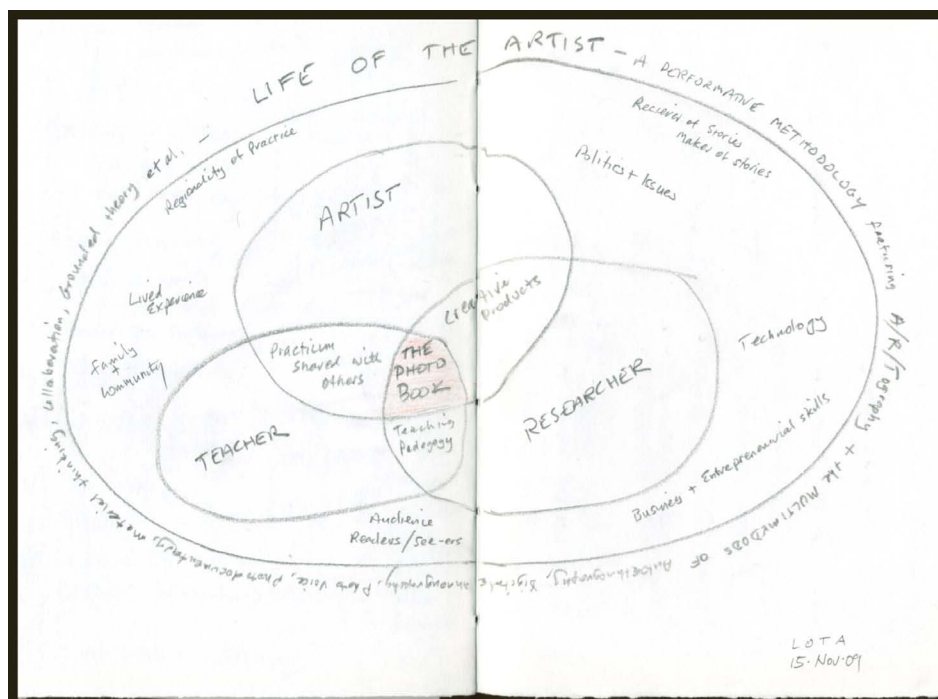 LIFE OF THE ARTIST – A PERFORMATIVE METHODOLOGY featuring A/R/Tography + the MULTIMETHODS OF Autoethnography, Digital ethnography, Photo Voice, Photodocumentary, material thinking, collaboration, Grounded theory et al. –
Regionality of Practice
Reciever of Stories
maker of stories
Politics + Issues
ARTIST
Lived
Experience
Creative
Products
Technology
Family
+
Community
Practicum
shared with
others
THE
PHOTO
BOOK
RESEARCHER
TEACHER
Teaching
Pedagogy
Business + Entrepreneurial skills
Audience
Readers/See-ers
LOTA
15·Nov·09